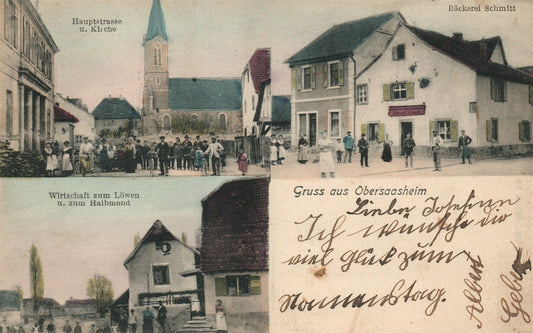 Hauptstrasse
u. Kirche
Bäckerei Schmitt
Wirtschaft zum Löwen
u. zum Halbmond
Gruss aus Obersaasheim
Lieber Johann
Ich wünsche dir
viel glük zum
Nammenstag.
Albert